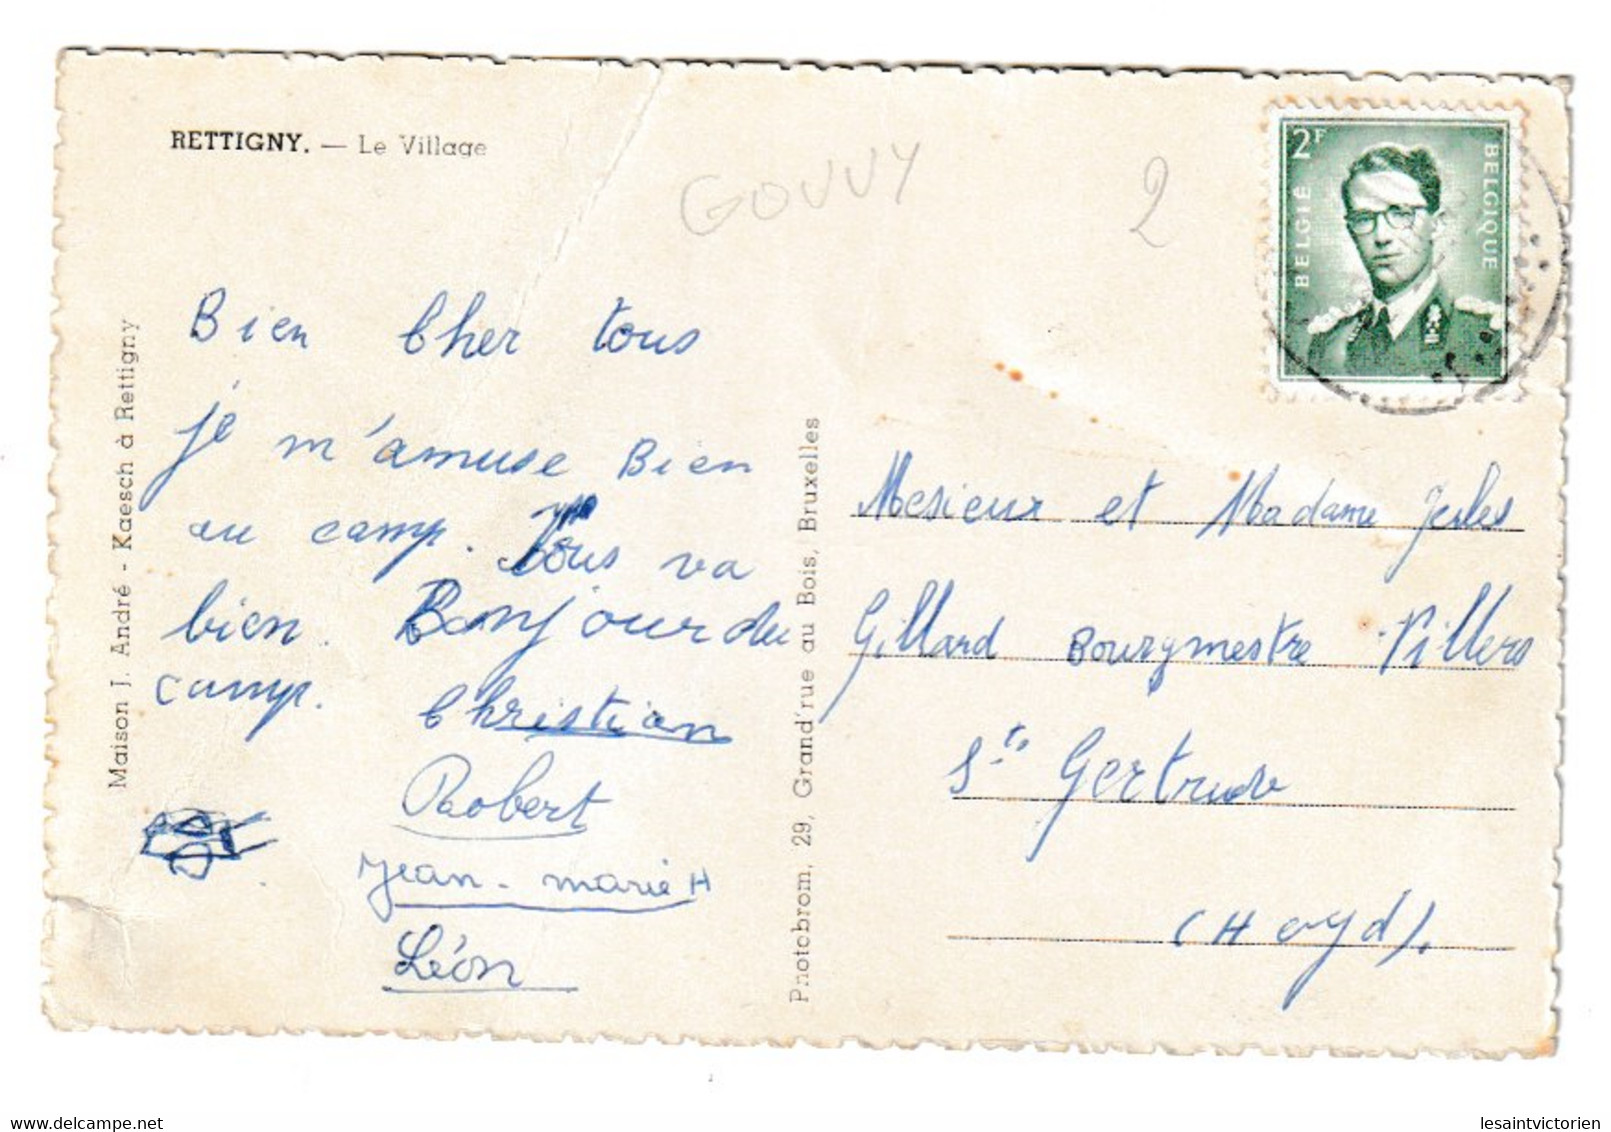 RETTIGNY. — Le Village
GOUVY
2
2F
BELGIË
BELGIQUE
Bien Cher tous
je m'amuse Bien
au camp. Tous va
bien. Bonjour du
camp.
Christian
Robert
Jean-marie H
Léon
Maison J. André - Kaesch à Rettigny
Photobrom, 29, Grand'rue au Bois, Bruxelles
Mesieur et Madame Jules
Gillard Bourgmestre Villers
Ste Gertrude
(Hoyd).
delcampe.net
lesaintvictorien